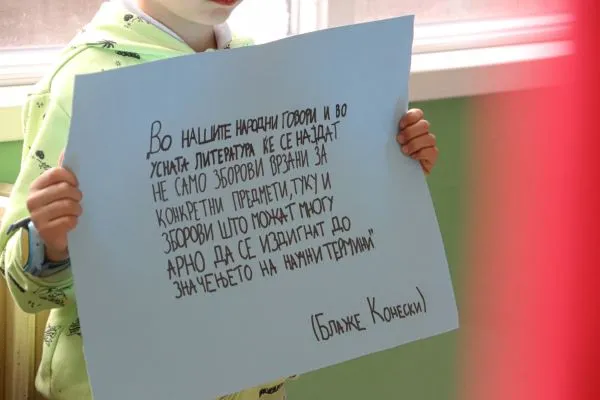 Во НАШИТЕ НАРОДНИ ГОВОРИ И ВО
УСНАТА ЛИТЕРАТУРА ЌЕ СЕ НАЈДАТ
НЕ САМО ЗБОРОВИ ВРЗАНИ ЗА
КОНКРЕТНИ ПРЕДМЕТИ, ТУКУ И
ЗБОРОВИ ШТО МОЖАТ МНОГУ
АРНО ДА СЕ ИЗДИГНАТ ДО
ЗНАЧЕЊЕТО НА НАУЧНИ ТЕРМИНИ"
(Блаже Конески)